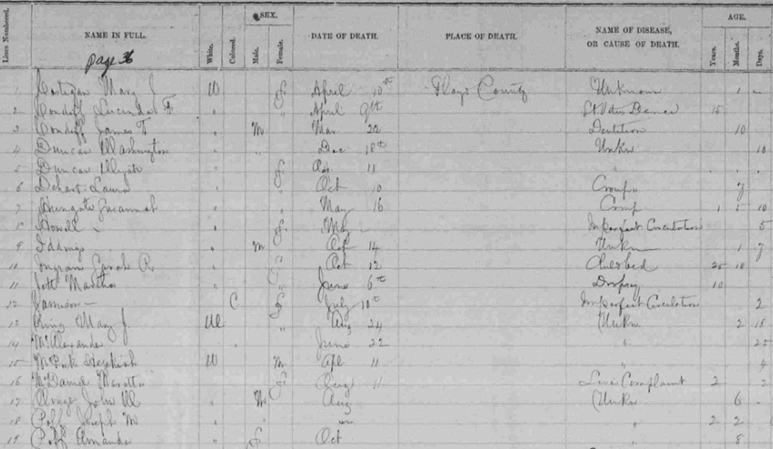 SEX. AGE.
Lines Numbered. NAME IN FULL. White. Colored. Male. Female. DATE OF DEATH. PLACE OF DEATH. NAME OF DISEASE, OR CAUSE OF DEATH. Years. Months. Days.
page 36
1 Mary J W f April 10th Floyd County Unknown 1 -
2 Conduff Lucinda F " " April 9th St Vitus Dance 15
3 Conduff James T " M Mar 22 Dentition 10
4 Duncan Washington " " Dec 18th Unkn 10
5 Duncan " f 11
6 Dehart Laura " " Oct 10 Croup 7
7 Susannah " " May 16 Croup 1 5 10
8 Howell - " f May - Imperfect Circulation 5
9 Iddings " M Oct 14 Unkn 1 7
10 Ingram Sarah R. " f Oct 12 Childbed 10
11 Martha " June 6th Dropsy 10
12 Jamison - C f July 10th Imperfect Circulation 2
13 King Mary J. W " Aug 24 Unkn 2 15
14 McAlexander June 22 " 25
15 Hezekiah W M Apl 11 " 4
16 McDaniel f Aug 11 Complaint 2 2
17 John W " M Aug Unkn 6 -
18 Poff Joseph M " " " 2 2
19 Poff Amanda " f Oct " 8